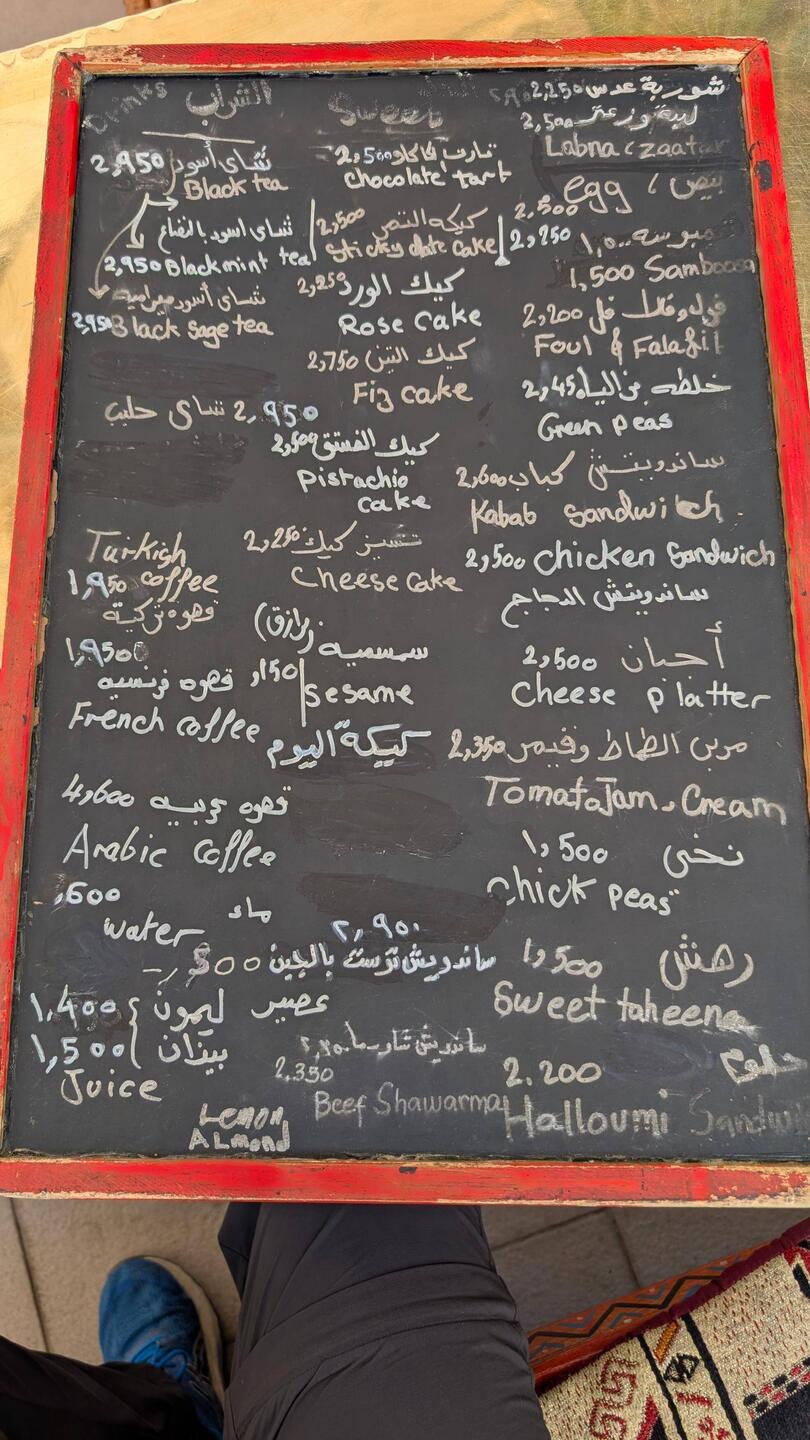 Drinks الشراب
2,950 شاي أسود
Black tea
شاي اسود بالنعناع
2,950 Black mint tea
شاي أسود ميرامية
2,950 Black sage tea
2,950 شاي حليب
Turkish
1,950 coffee
قهوه تركية
1,950
قهوه فرنسيه
French coffee
4,600 قهوه عربيه
Arabic coffee
,600 ماء
water
1,400 عصير ليمون
1,500 بيذان
Juice
Lemon
ALmond
Sweet
2,500 تارت كاكاو
chocolate tart
2,500 كيكه التمر
Sticky date cake
2,250 كيك الورد
Rose cake
2,750 كيك التين
Fig cake
2,500 كيك الفستق
Pistachio
cake
2,250 تشيز كيك
Cheese cake
سمسميه (برازق)
,150 Sesame
كيكة اليوم
٢,٩٠٠
ساندويش توست بالجبن
ساندويش شاورما
2.350
Beef Shawarma
2,250 شوربة عدس
2,500 لبنة وزعتر
Labna & zaatar
egg بيض
2,500
2,250
1,500 Samboosa
2,200 فول وفلافل
Foul & Falafil
2,450 خلطه بزاليا
Green peas
2,600 ساندويتش كباب
Kabab Sandwitch
2,500 chicken Sandwich
ساندويتش الدجاج
2,500 أجبان
cheese platter
2,350 مربى الطماط وقيمر
Tomato Jam, Cream
1,500 نخي
chick peas
1,500 رهش
Sweet taheena
2.200 حلوم
Halloumi Sandwi